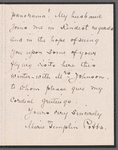 panorama! My husband
joins me in kindest regards
and in the hope of seeing
you upon some of your
flying visits here this
Winter, with Mrs Johnson,
to whom please give my
cordial greetings.
Yours very sincerely
Templin Potts.